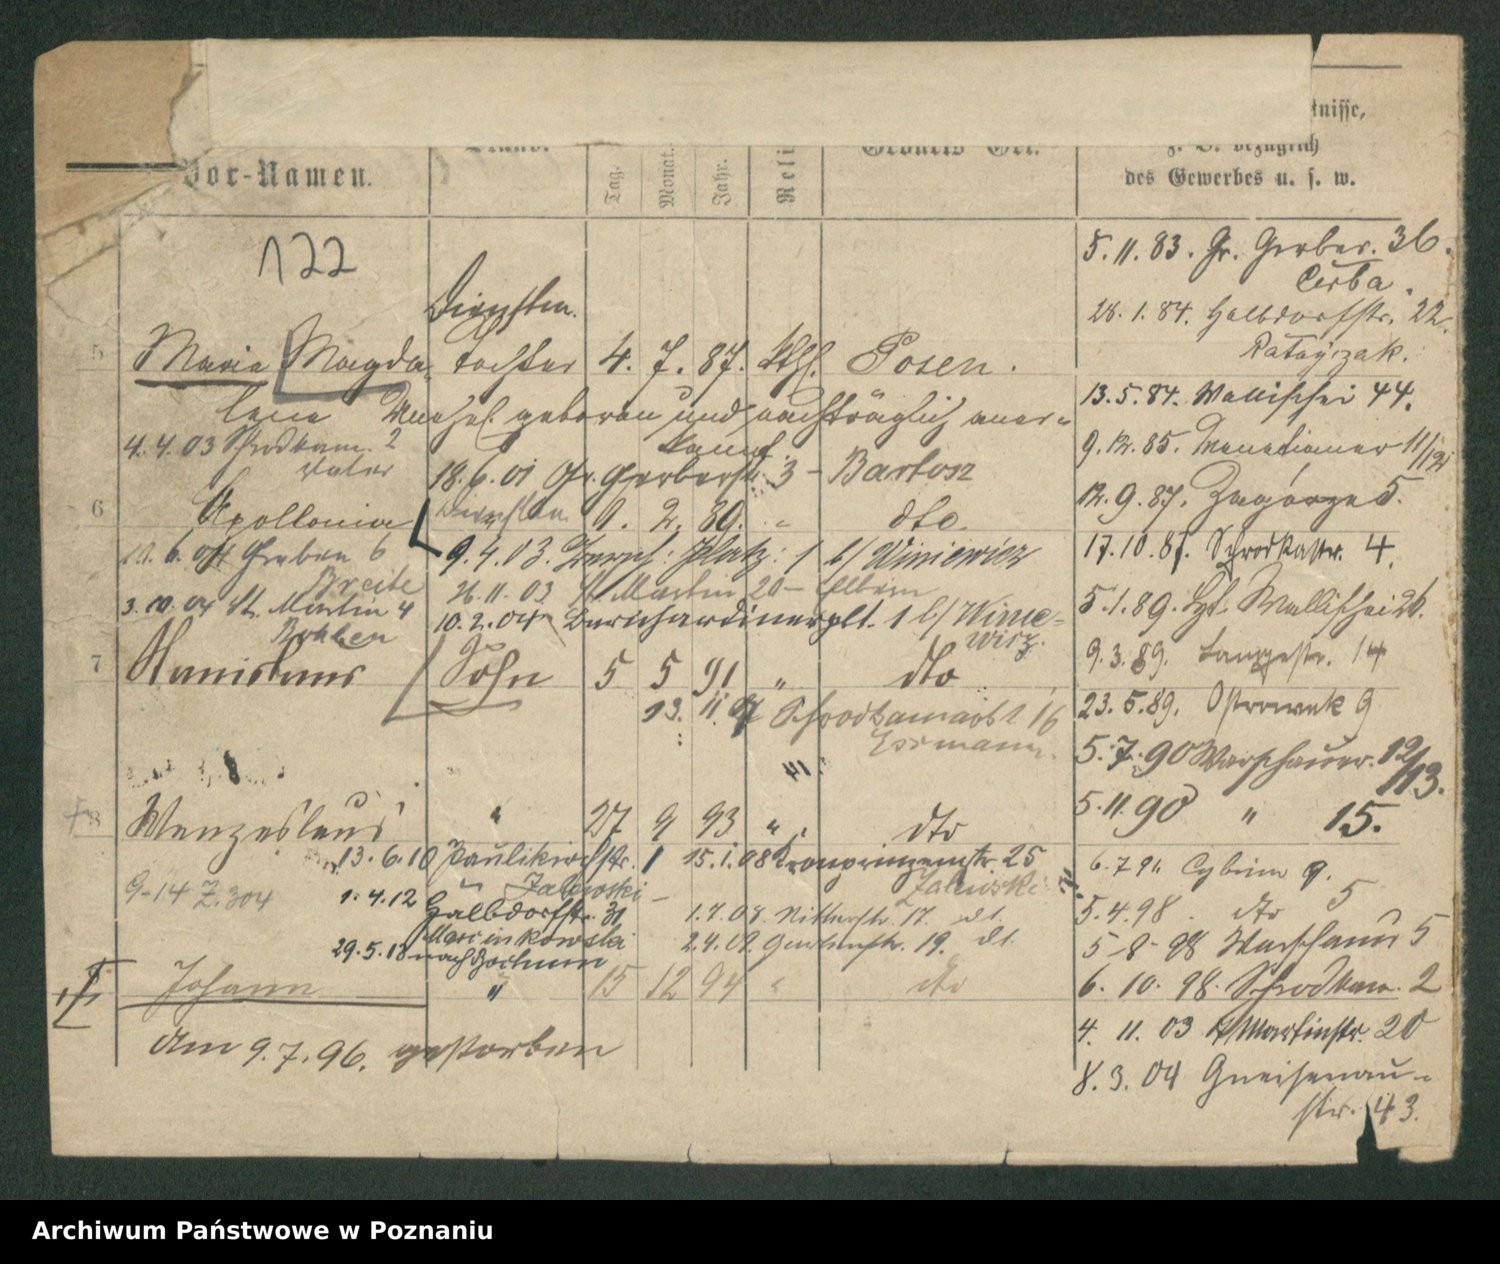 tnisse,
Vor-Namen.
Stand.
Tag.
Monat.
Jahr.
Reli
Geburts Ort.
z. B. bezüglich
des Gewerbes u. s. w.
122
5
Maria Magda-
lena
Diensten
tochter 4. 7. 87. kthl. Posen.
geboren und nachträglich aner-
kannt.
4. 4. 03 Schrodkam. 2
Vater
18. 6. 01 Gr. Gerberstr. 3 - Bartosz
6
Apollonia 9. 2. 89. " dto.
6. 04 Graben 6
Breite
9. 4. 03. Platz: 1 b/ Winiewicz
26. 11. 03 St Martin 20 - Eltern
3. 10. 04 St. Martin 4
10. 2. 04 Bernhardinerplt. 1 b/ Winie-
wicz.
7
Stanislaus Sohn 5 5 91 " dto
13. 11. Schrodkamarkt 16
8
Wenzeslaus " 27 9 93 " dto
13. 6. 10 Paulikirchstr. 1
15. 1. 08 Kronprinzenstr. 25
Zalewski
9-14 Z. 304
1. 4. 12 Halbdorfstr. 31
Marcinkowski
1. 7. 08. Ritterstr. 17. dt.
2. 4. 09. 19. dt.
29. 5. 18 nach Bochum
Johann " 15 12 94 " dto
Am 9. 7. 96. gestorben
5. 11. 83. Gr. Gerber. 36.
Cerba.
28. 1. 84. Halbdorfstr. 22.
Ratajczak.
13. 5. 84. Wallischei 44.
9. 12. 85. Venetianer 11/12
12. 9. 87. Zagórze 5.
17. 10. 87. Schrodkastr. 4.
5. 1. 89. Wallischei 26.
9. 3. 89. Langestr. 14
23. 5. 89. Ostrowek 9
5. 7. 90 Warschauer. 12/13.
5. 11. 90 " 15.
6. 7 94 Cybina 9.
5. 4. 98. dto 5
5-8-98 Warschauer 5
6. 10. 98. Schrodkam. 2
4. 11. 03 St Martinstr. 20
8. 3. 04 Gneisenau-
str. 43.
Archiwum Państwowe w Poznaniu